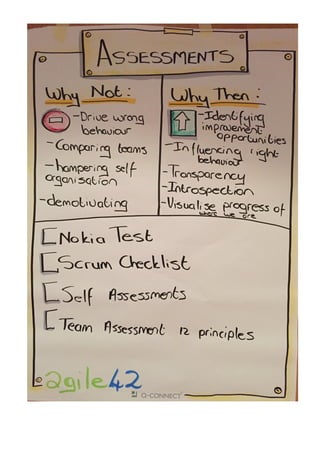 ASSESSMENTS
Why Not:
-Drive wrong
behaviour
-Comparing teams
-hampering self
organisation
-demotivating
Why Then:
-Identifying
improvement
opportunities
-Influencing right
behaviour
-Transparency
-Introspection
-Visualise progress of
where we are
Nokia Test
Scrum Checklist
Self Assessments
Team Assessment 12 principles
agile42
Q-CONNECT